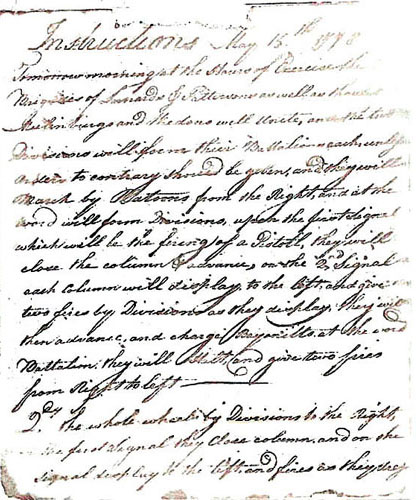 Instructions May 15th 1778
Tomorrow morning at the Hours of Exercise the
Brigades of Larnards & Pattersons as well as those of
and the two
Divisions will form their Battalions each, unless
orders to contrary should be given, and they will
March by Platoons from the Right, and at the
word will form Divisions, upon the first signal
which will be the firing of a Pistoll, they will
close the column & advance, on the 2nd Signal
each Column will display to the left, and give
two fires by Divisions as they display. they will
then advance, and charge Bayonetts, at the word
Battalion. they will Halt, and give two fires
from Right to left
2dly the whole wheel by Divisions to the Right,
on the first Signal they Close column, and on the
signal display to the left, and fires as they